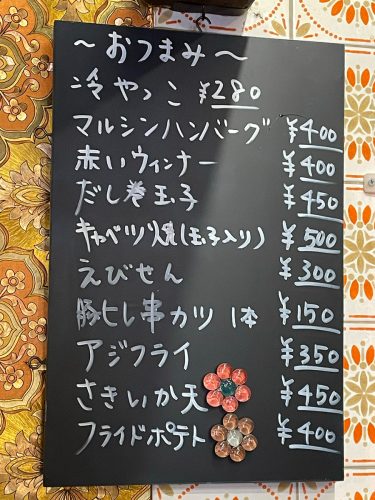 ～おつまみ～
冷やっこ ¥280
マルシンハンバーグ ¥400
赤いウィンナー ¥400
だし巻玉子 ¥450
キャベツ焼(玉子入り) ¥500
えびせん ¥300
豚ヒレ串カツ 1本 ¥150
アジフライ ¥350
さきいか天 ¥450
フライドポテト ¥400